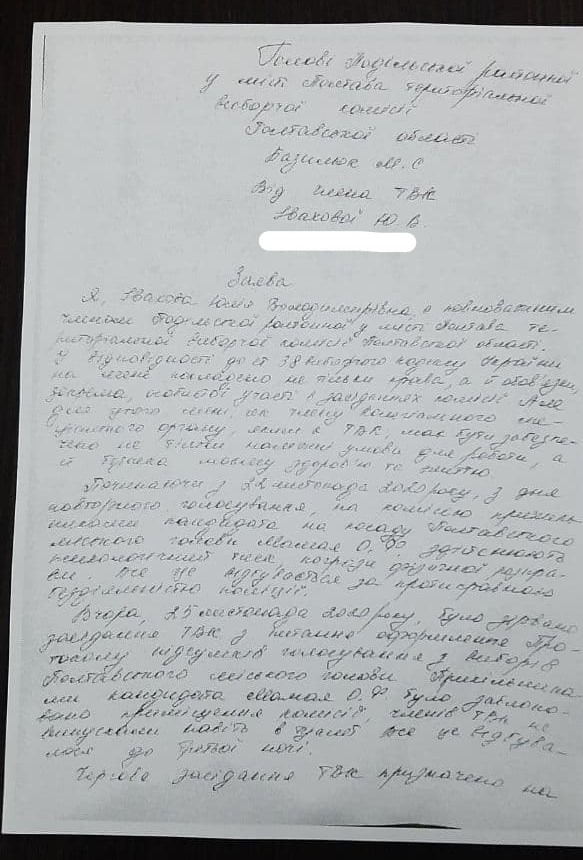 Голові Подільської районної
у місті Полтава територіальної
виборчої комісії
Полтавської області
Базилюк М.С
Від члена ТВК
Івахової Ю.В.
Заява
Я, Івахова Юлія Володимирівна, є повноважним
членом Подільської районної у місті Полтава те-
риторіальної виборчої комісії Полтавської області.
У відповідності до ст 38 виборчого кодексу України
на мене покладено не тільки права, а й обов'язки,
зокрема, особистої участі в засіданнях комісії. Але
для цього мені, як члену колегіального
органу, яким є ТВК, має бути забезпе-
чено не тільки належні умови для роботи, а
й безпека моєму здоров'ю та життю.
Починаючи з 22 листопада 2020 року, з дня
повторного голосування, на комісію прихиль-
никами кандидата на посаду Полтавського
міського голови Мамая О.Ф. здійснюють
психологічний тиск, погрози фізичної розпра-
ви. Все це відбувається за протиправною
бездіяльністю поліції.
Вчора, 25 листопада 2020 року, було зірвано
засідання ТВК з питання оформлення Про-
токолу підсумків голосування з виборів
Полтавського міського голови. Прихильника-
ми кандидата Мамая О.Ф. було заблоко-
вано приміщення комісії, членів ТВК не
випускали навіть в туалет. Все це відбува-
лося до третьої ночі.
Чергове засідання ТВК призначено на